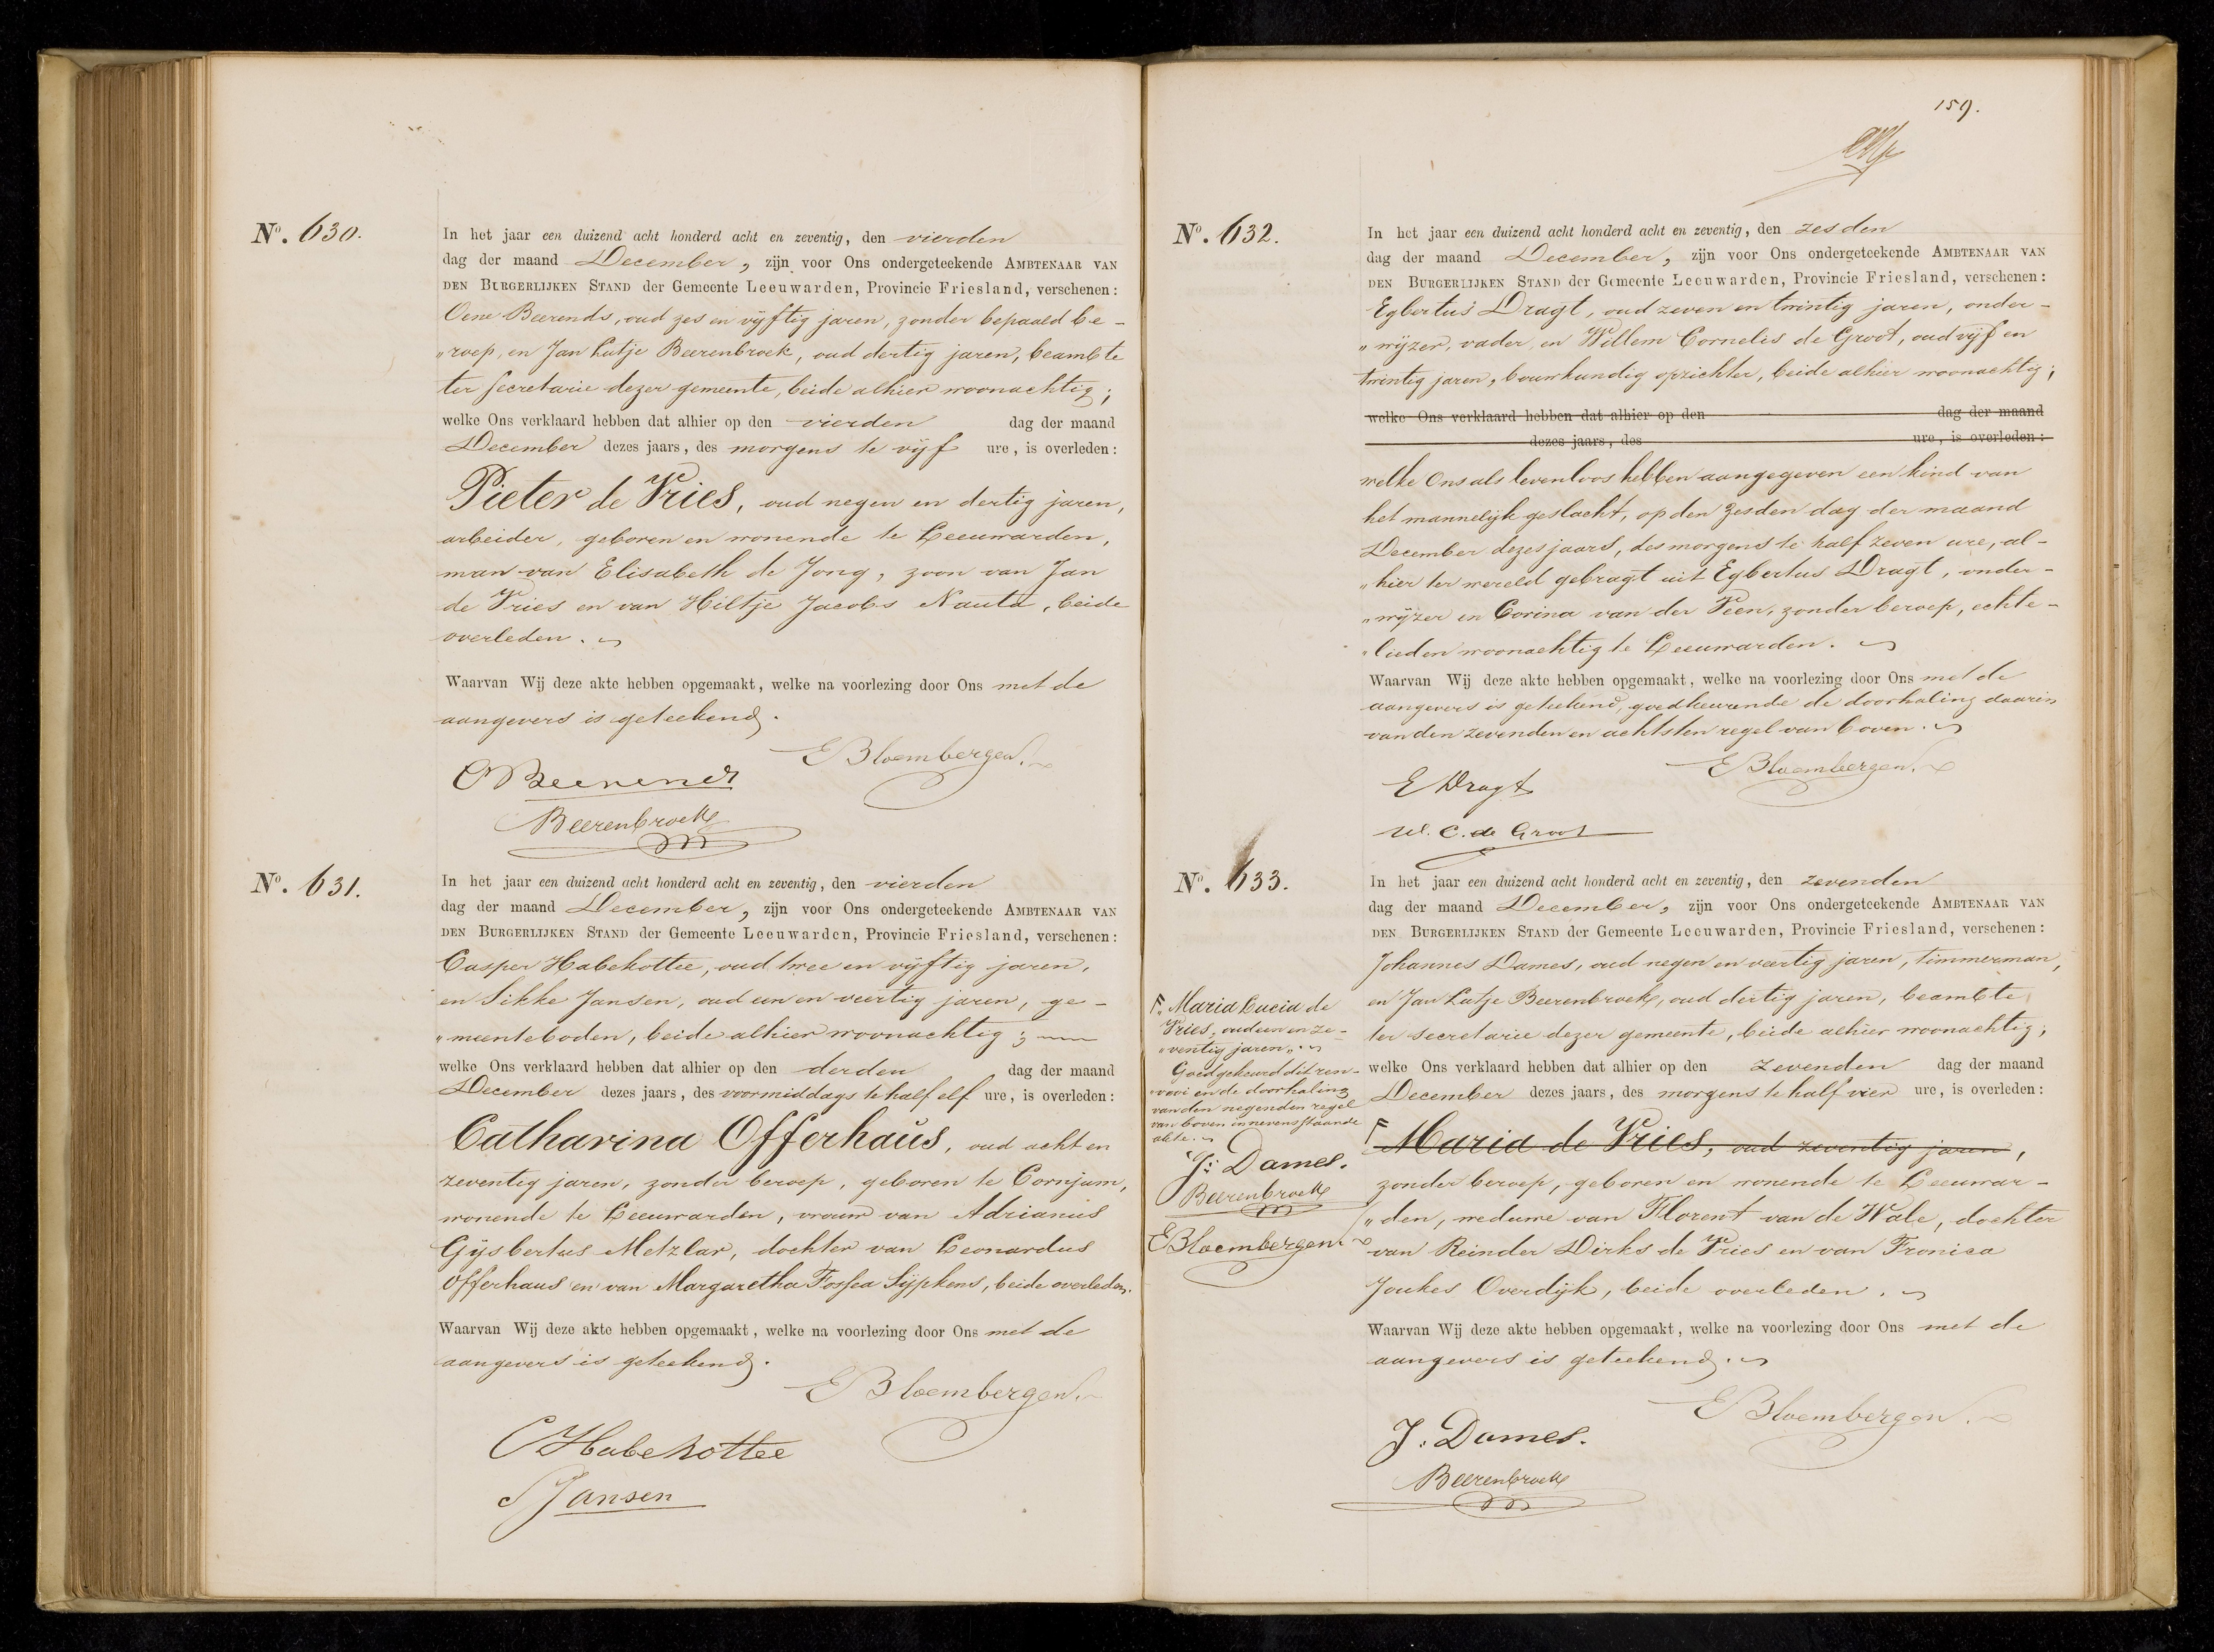 Nº. 630.
In het jaar een duizend acht honderd acht en zeventig, den vierden
dag der maand December, zijn voor Ons ondergeteekende AMBTENAAR VAN
DEN BURGERLIJKEN STAND der Gemeente Leeuwarden, Provincie Friesland, verschenen:
Oene Beerends, oud zes en vijftig jaren, zonder bepaald be-
„roep, en Jan Lutje Beerenbroek, oud dertig jaren, beambte
ter secretarie dezer gemeente, beide alhier woonachtig;
welke Ons verklaard hebben dat alhier op den vierden dag der maand
December dezes jaars, des morgens te vijf ure, is overleden:
Pieter de Vries, oud negen en dertig jaren,
arbeider, geboren en wonende te Leeuwarden,
man van Elisabeth de Jong, zoon van Jan
de Vries en van Hiltje Jacobs Nauta, beide
overleden.
Waarvan Wij deze akte hebben opgemaakt, welke na voorlezing door Ons met de
aangevers is geteekend.
EBloembergen.
OBeerends
Beerenbroek
Nº. 631.
In het jaar een duizend acht honderd acht en zeventig, den vierden
dag der maand December, zijn voor Ons ondergeteekende AMBTENAAR VAN
DEN BURGERLIJKEN STAND der Gemeente Leeuwarden, Provincie Friesland, verschenen:
Casper Habekottee, oud twee en vijftig jaren,
en Sikke Jansen, oud een en veertig jaren, ge-
„meenteboden, beide alhier woonachtig;
welke Ons verklaard hebben dat alhier op den derden dag der maand
December dezes jaars, des voormiddags te half elf ure, is overleden:
Catharina Offerhaus, oud acht en
zeventig jaren, zonder beroep, geboren te Cornjum,
wonende te Leeuwarden, vrouw van Adrianus
Gijsbertus Metzlar, dochter van Leonardus
Offerhaus en van Margaretha Fossea Sijpkens, beide overleden.
Waarvan Wij deze akte hebben opgemaakt, welke na voorlezing door Ons met de
aangevers is geteekend.
EBloembergen.
CHabekottee
SJansen
159.
Nº. 632.
In het jaar een duizend acht honderd acht en zeventig, den zesden
dag der maand December, zijn voor Ons ondergeteekende AMBTENAAR VAN
DEN BURGERLIJKEN STAND der Gemeente Leeuwarden, Provincie Friesland, verschenen:
Egbertus Dragt, oud zeven en twintig jaren, onder-
„wijzer, vader, en Willem Cornelis de Groot, oud vijf en
twintig jaren, bouwkundig opzichter, beide alhier woonachtig;
welke Ons verklaard hebben dat alhier op den dag der maand
dezes jaars, des ure, is overleden:
welke Ons als levenloos hebben aangegeven een kind van
het mannelijk geslacht, op den zesden dag der maand
December dezes jaars, des morgens te half zeven ure, al-
„hier ter wereld gebragt uit Egbertus Dragt, onder-
„wijzer en Corina van der Veen, zonder beroep, echte-
„lieden woonachtig te Leeuwarden.
Waarvan Wij deze akte hebben opgemaakt, welke na voorlezing door Ons met de
aangevers is geteekend, goedkeurende de doorhaling daarin
van den zevenden en achtsten regel van boven.
EBloembergen.
E Dragt
W. C. de Groot
Nº. 633.
In het jaar een duizend acht honderd acht en zeventig, den zevenden
dag der maand December, zijn voor Ons ondergeteekende AMBTENAAR VAN
DEN BURGERLIJKEN STAND der Gemeente Leeuwarden, Provincie Friesland, verschenen:
Johannes Dames, oud negen en veertig jaren, timmerman,
en Jan Lutje Beerenbroek, oud dertig jaren, beambte
ter secretarie dezer gemeente, beide alhier woonachtig,
welke Ons verklaard hebben dat alhier op den zevenden dag der maand
December dezes jaars, des morgens te half vier ure, is overleden:
Maria de Vries, oud zeventig jaren,
zonder beroep, geboren en wonende te Leeuwar-
„den, weduwe van Florent van de Wale, dochter
van Reinder Dirks de Vries en van Fronica
Joukes Overdijk, beide overleden.
Waarvan Wij deze akte hebben opgemaakt, welke na voorlezing door Ons met de
aangevers is geteekend.
EBloembergen.
J. Dames.
Beerenbroek
Maria Lucia de
Vries, oud een en ze-
„ventig jaren,
Goedgekeurd dit ren-
„vooi en de doorhaling
van den negenden regel
van boven in nevenstaande
akte.
J. Dames.
Beerenbroek
EBloembergen